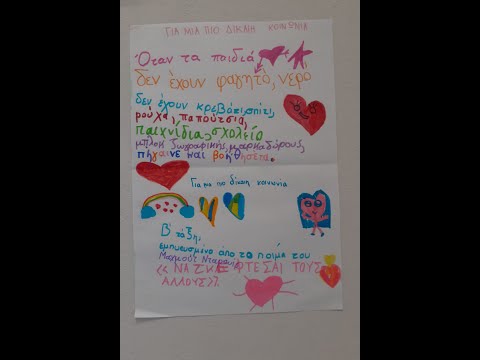 ΓΙΑ ΜΙΑ ΠΙΟ ΔΙΚΑΙΗ ΚΟΙΝΩΝΙΑ
Όταν τα παιδιά
δεν έχουν φαγητό, νερό
δεν έχουν κρεβάτι, σπίτι,
ρούχα, παπούτσια,
παιχνίδια, σχολείο
μπλοκ ζωγραφικής, μαρκαδόρους,
πήγαινε και βοήθησέτα.
Για μια πιο δίκαιη κοινωνία
Β΄ τάξη,
εμπνευσμένο από το ποίημα του
Μαχμούτ Νταρουίς
«ΝΑ ΣΚΕΦΤΕΣΑΙ ΤΟΥΣ
ΑΛΛΟΥΣ».